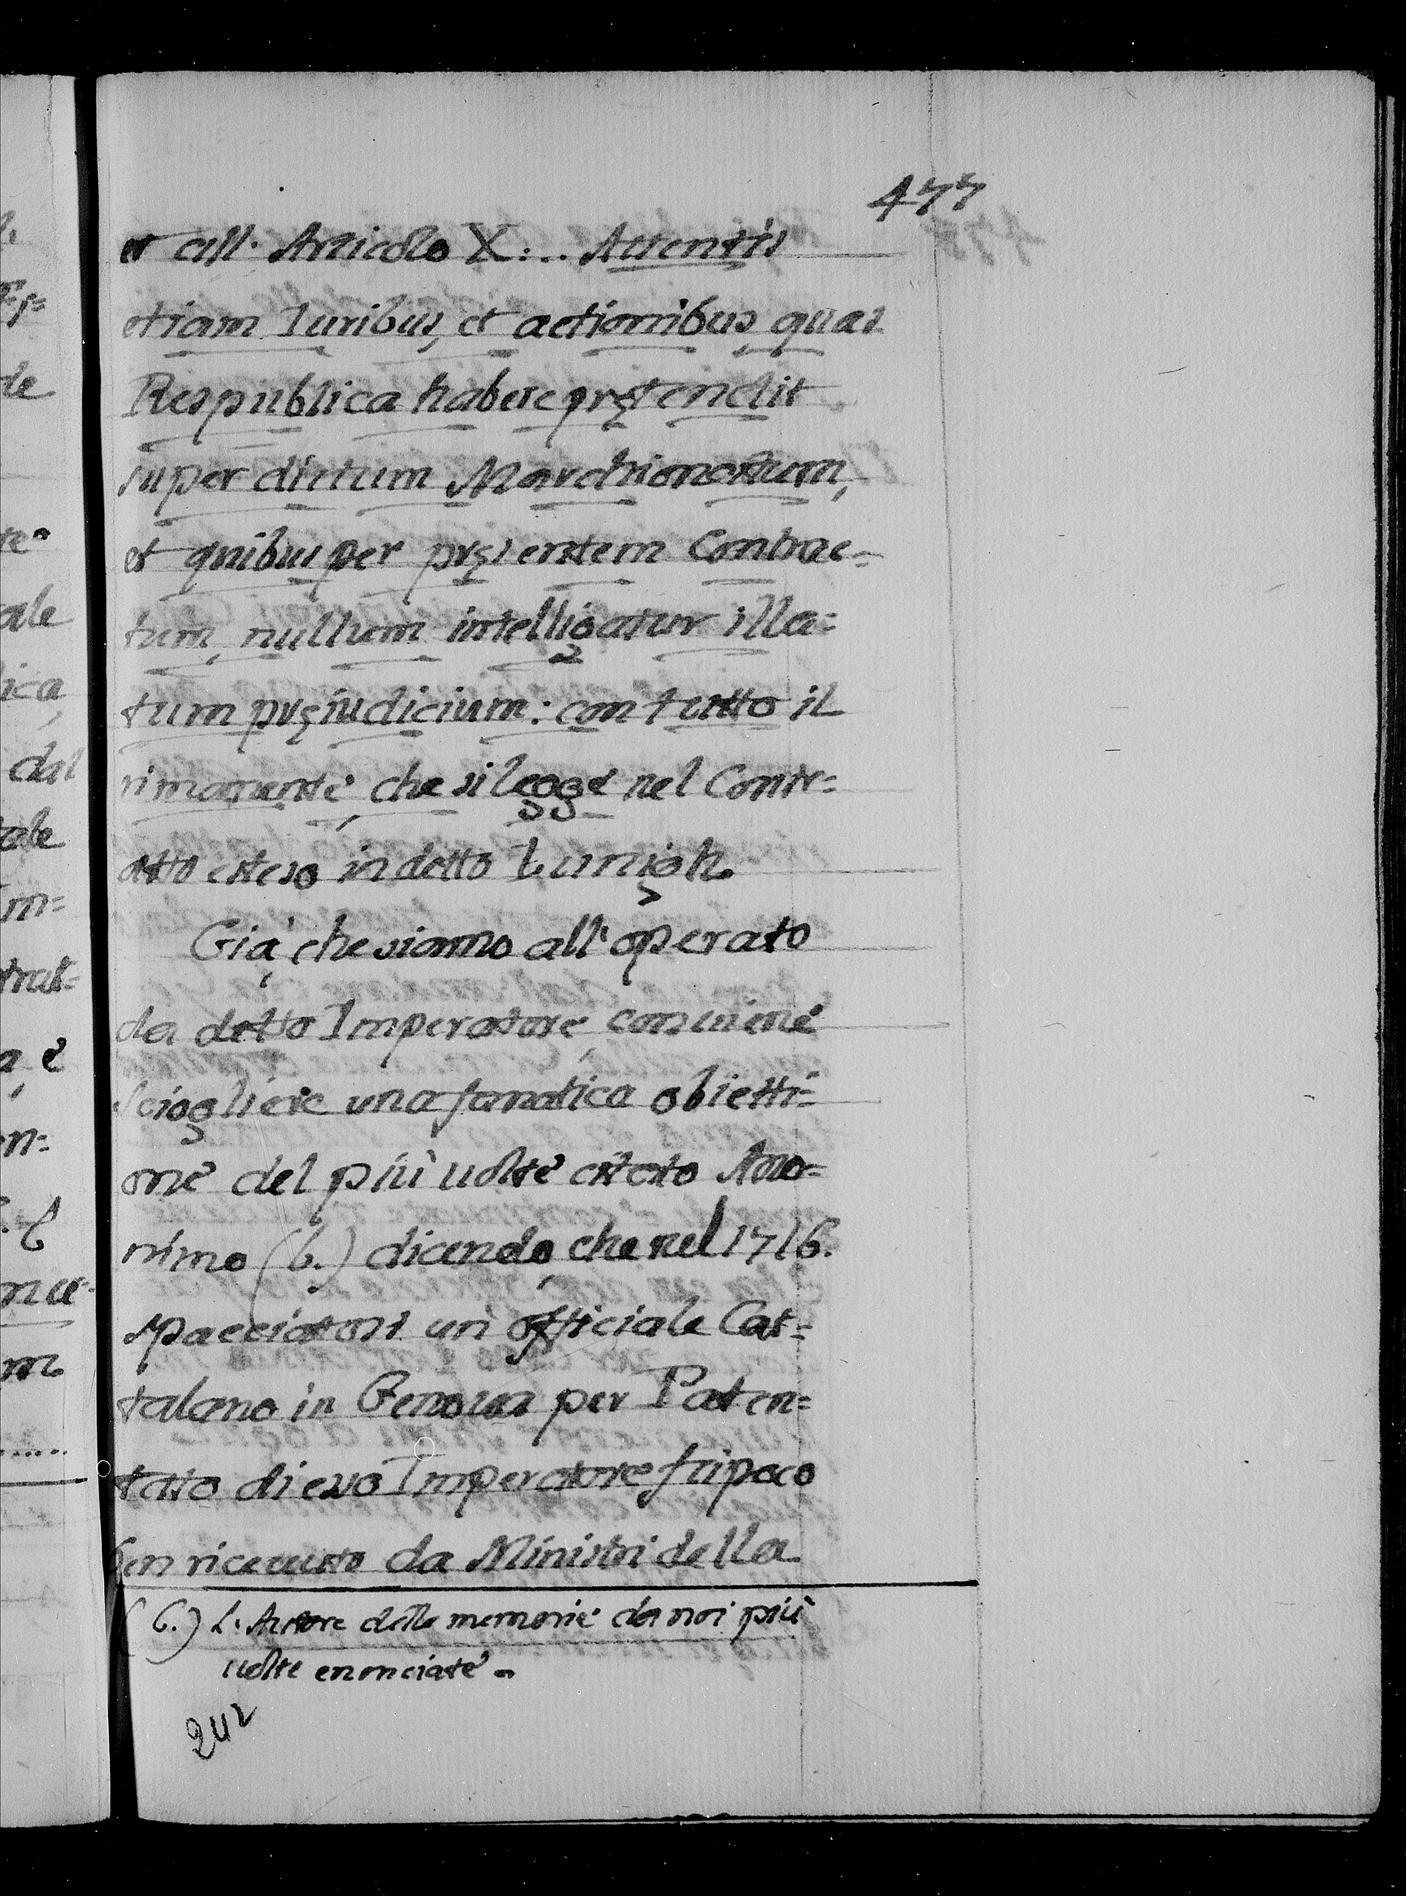 477
et all. Articolo X:.. Attentis
etiam Iuribus, et actionibus, quas
Respublica habere prętendit
super dictum Marchionatum,
et quibus per pręsentem Contrac=
tum, nullum intelligatur illa=
tum pręiudicium: con tutto il
rimanente, che si legge nel Contr=
atto esteso in detto Lunigh.
Già che siamo all'operato
da detto Imperatore, conviene
sciogliere una fanatica obietti=
one del più uolte citato Ano=
nimo (b.) dicendo, che nel 1716.
spacciatosi un officiale Cat=
talano in Genoua per Paten=
tato di esso Imperatore fu poco
ben riceuuto da Ministri della
(b.) L. Autore delle memorie da noi più
uolte enonciate.
242